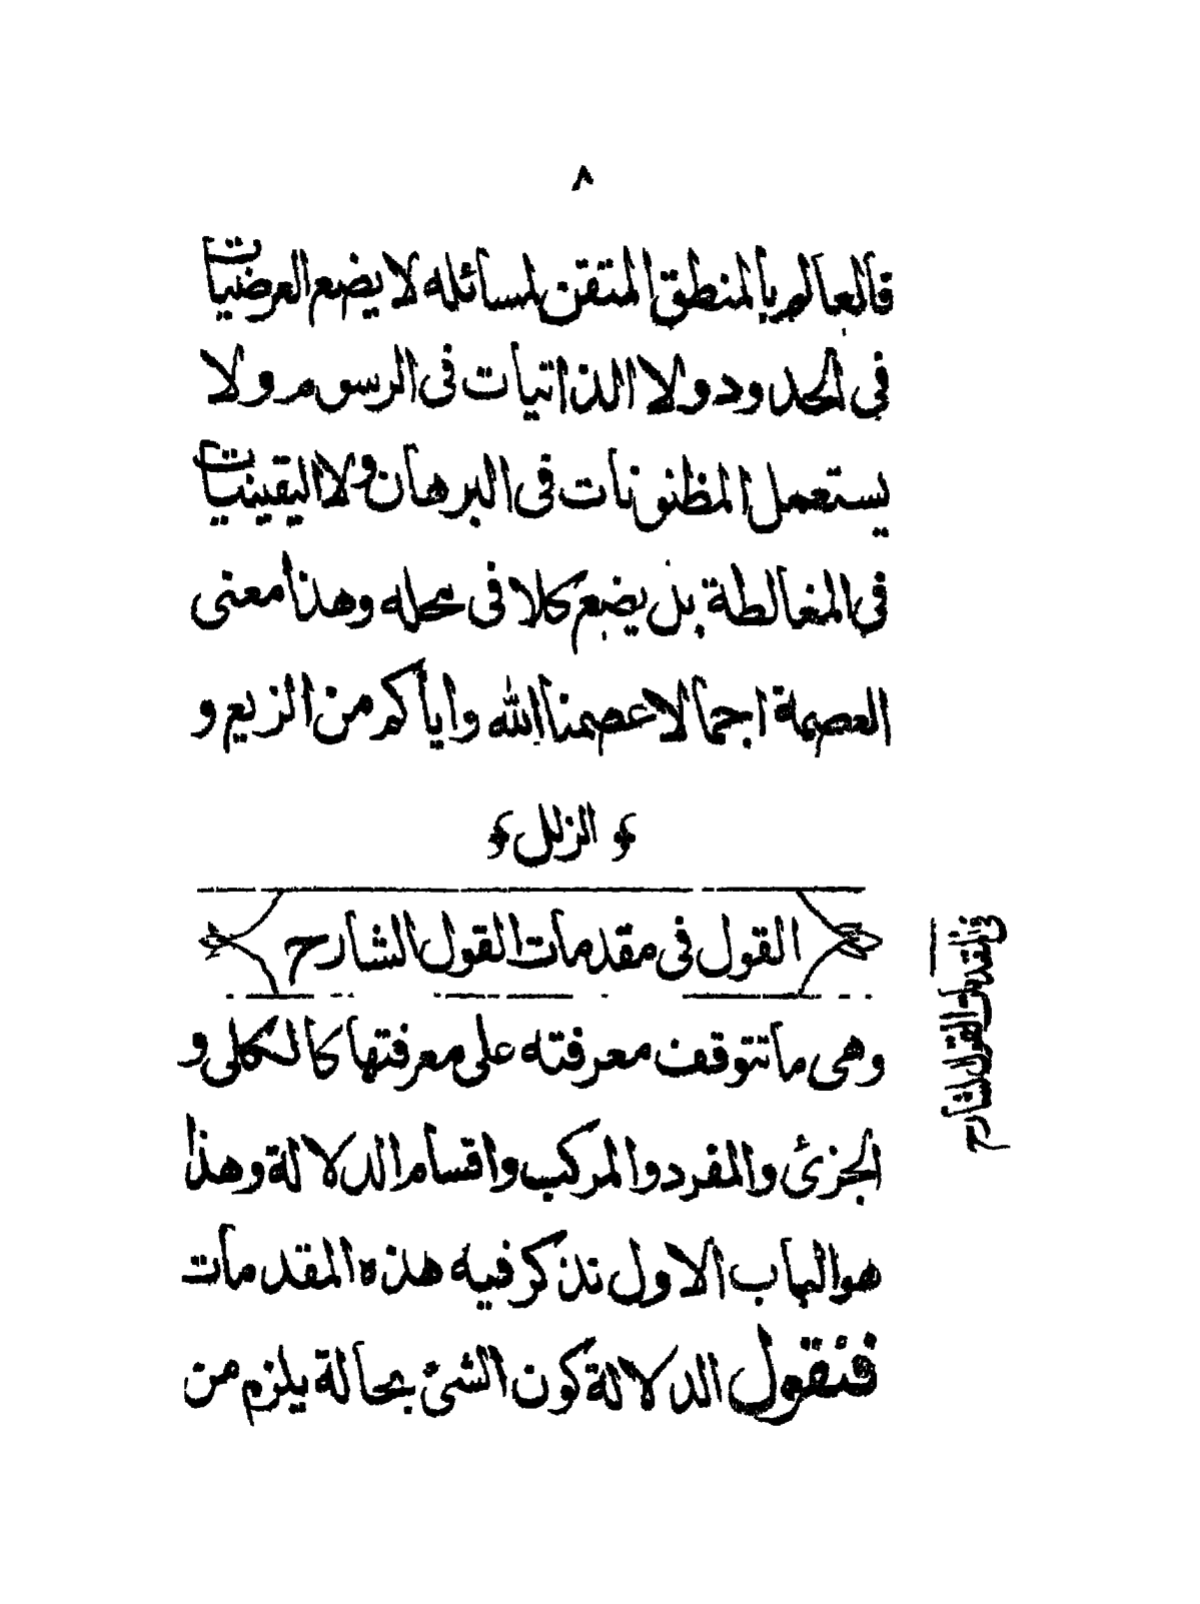 ٨
فالعالم بالمنطق المتقن لمسائله لا يضع العرضيات
فى الحدود ولا الذاتيات فى الرسوم ولا
يستعمل المظنونات فى البرهان ولا اليقينيات
فى المغالطة بل يضع كلا فى محله وهذا معنى
العصمة اجمالا عصمنا الله واياكم من الزيغ و
﴿ الزلل ﴾
القول فى مقدمات القول الشارح
وهى ما تتوقف معرفته على معرفتها كالكلى و
الجزئى والمفرد والمركب واقسام الدلالة وهذا
هو الباب الاول نذكر فيه هذه المقدمات
فنقول الدلالة كون الشئ بحالة يلزم من
فى المقدمات القول الشارح